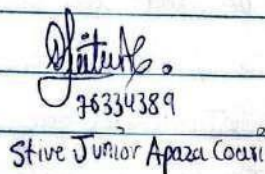 76334389
Stive Junior Apaza Coari